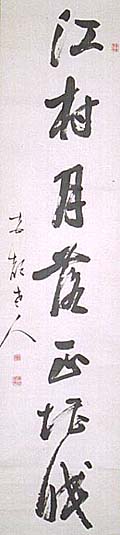 江村月落正堪眠
老人